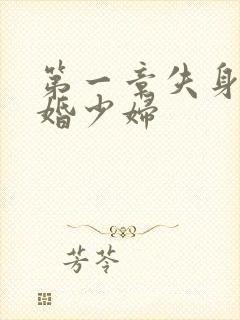 第一章失身
婚少婦
芳苓